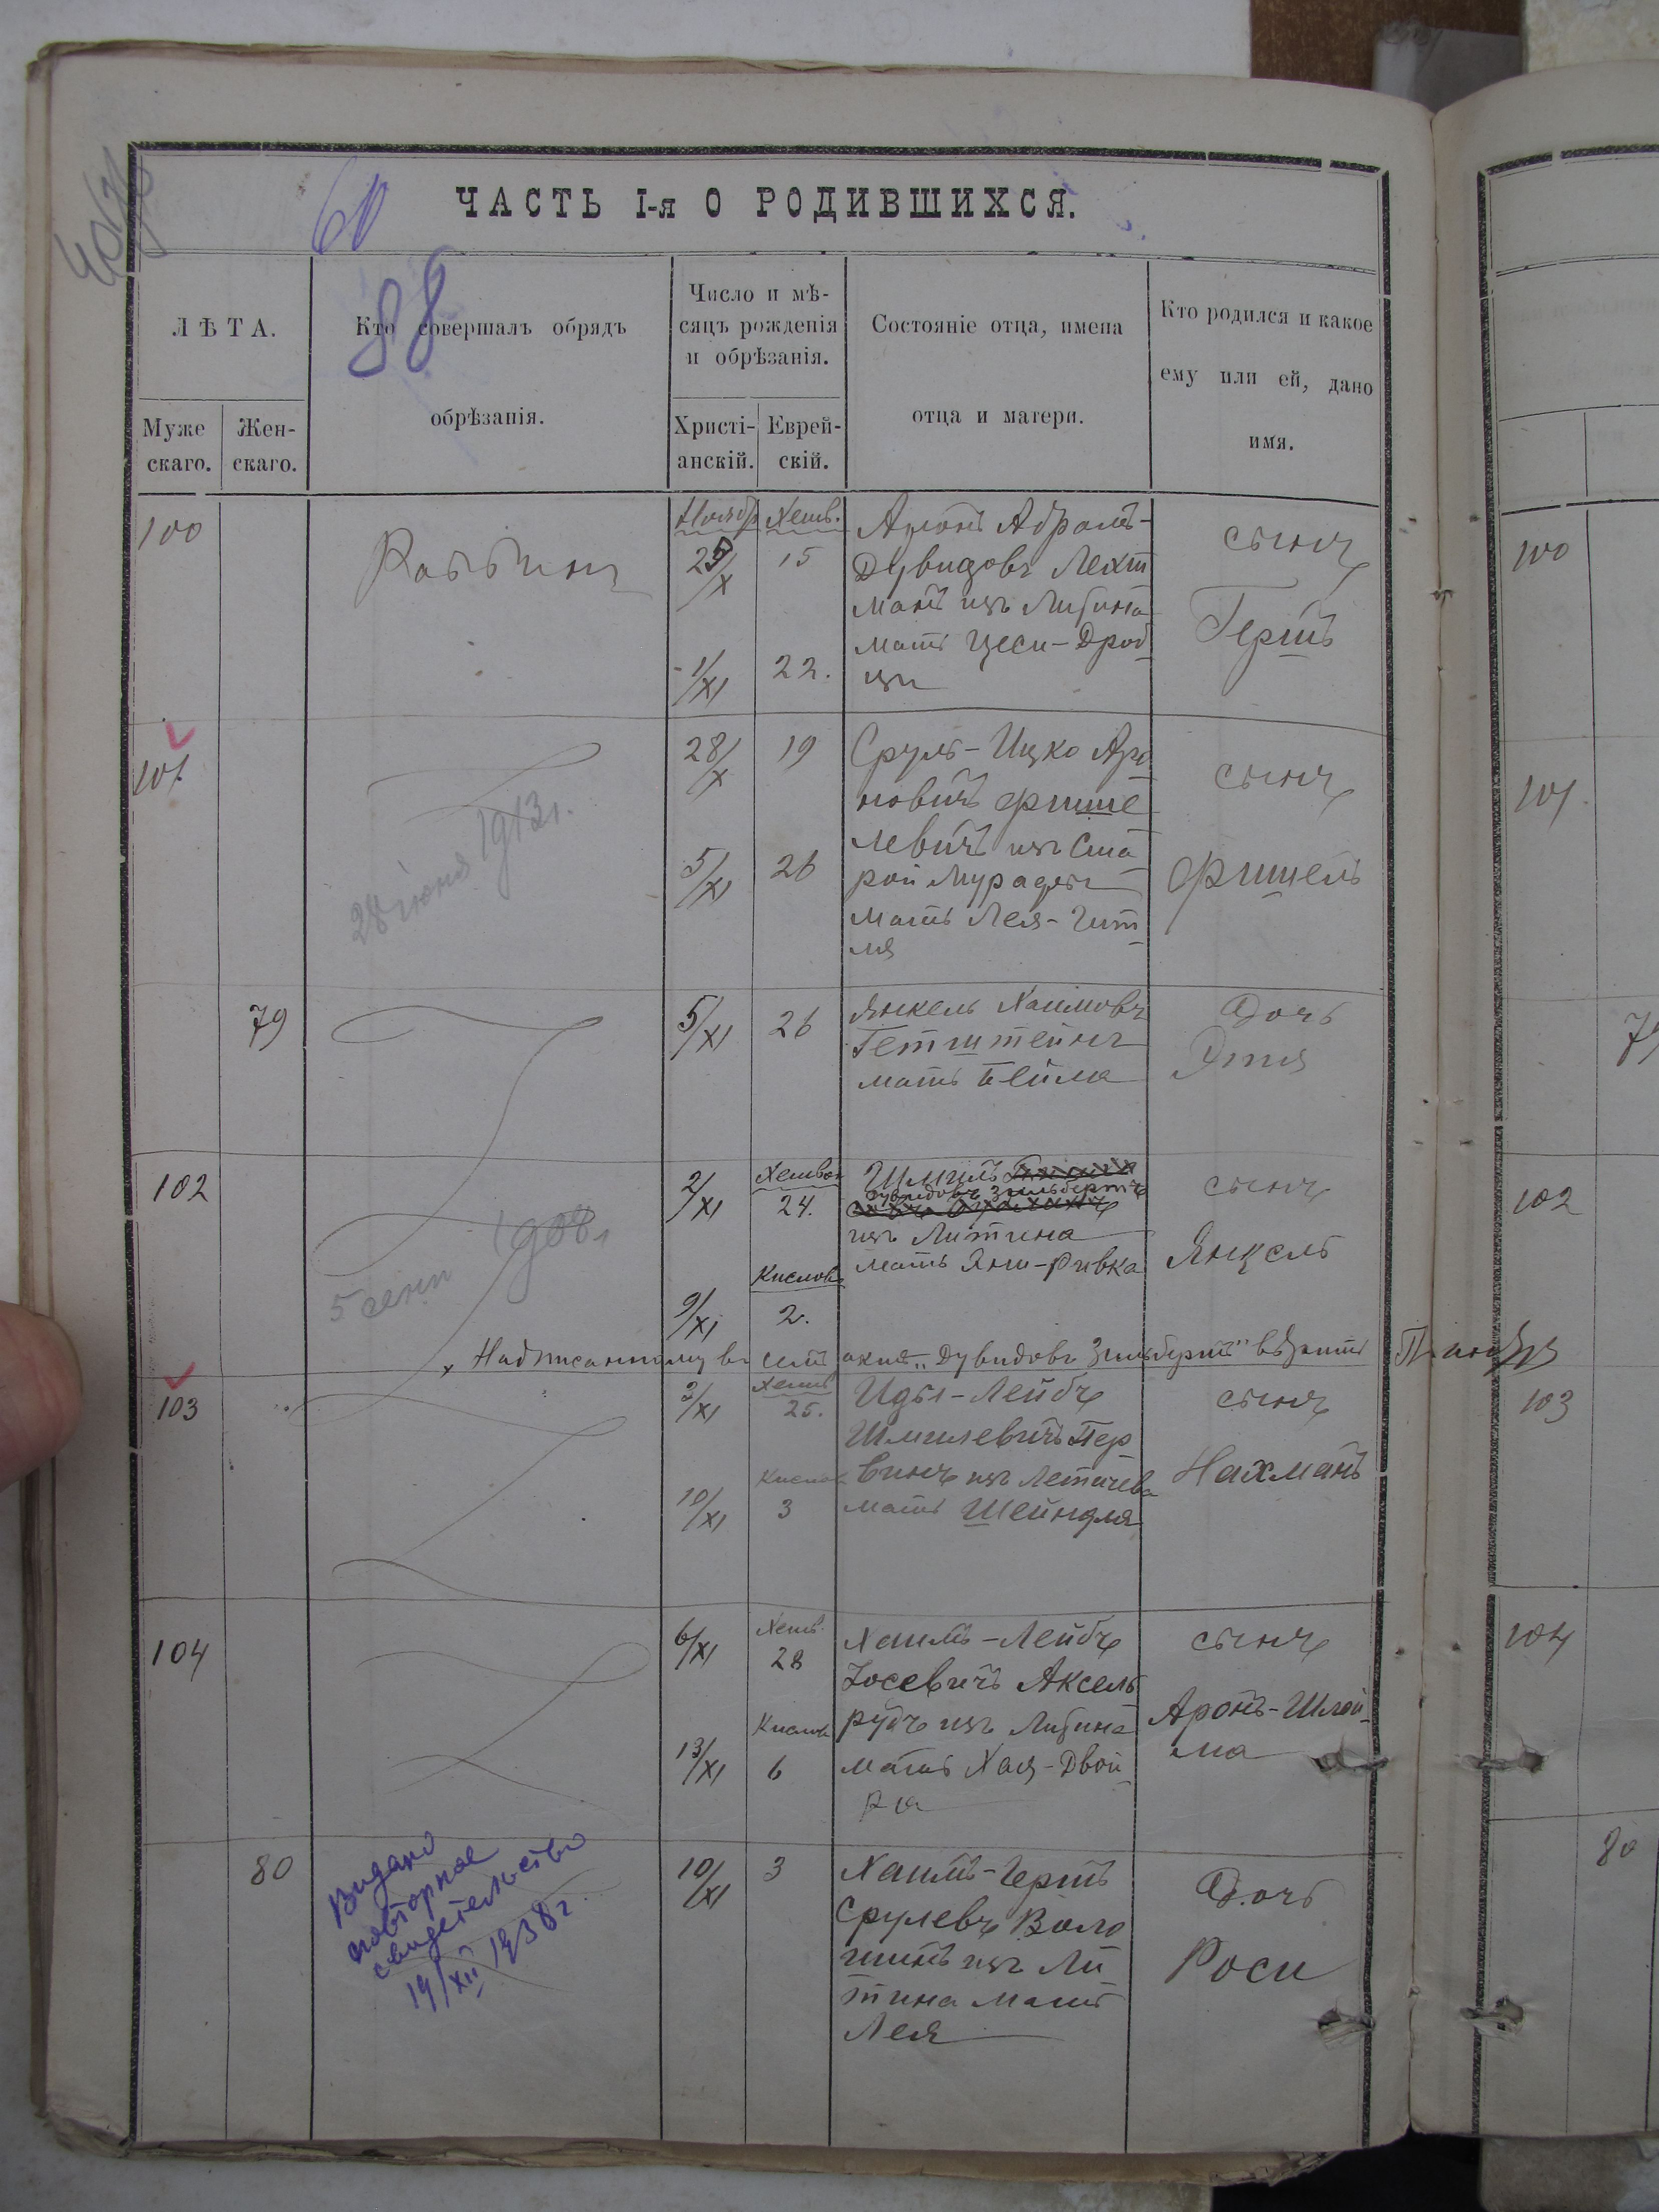 60
ЧАСТЬ I-я О РОДИВШИХСЯ.
88
ЛѢТА.
Муже
скаго.
Жен-
скаго.
Кто совершалъ обрядъ
обрѣзанія.
Число и мѣ-
сяцъ рожденія
и обрѣзанія.
Христі-
анскій.
Еврей-
скій.
Состояніе отца, имена
отца и матери.
Кто родился и какое
ему или ей, дано
имя.
100
Раввинъ
Хешв.
25/X
15
1/XI
22.
Аронъ Абрамъ-
Дувидовъ Лехт
манъ изъ
мать Цеси-Дрob
сынъ
Гершъ
100
101.
28 июня 1913 г.
28/X
19
5/XI
26
Сруль-Ицко Аро
новичъ Фише
левичъ изъ Ста
рой Мурафы
мать Лея- Гит
ля
сынъ
Фишель
101.
79
5/XI
26
Янкель Хаимовъ
Гетштейнъ
мать Бейла
дочь
Этля
79
102
5 сент 1908 г
2/XI
Хешван
24.
Кислов
9/XI
2.
Шмиль
Дувидовъ Зильберитъ
изъ Литина
мать Хени-Ривка
сынъ
Янкель
102
Надписанному въ сей актѣ „Дувидовъ Зильберитъ" вѣрить
103
3/XI
Хешв
25.
Кислов
10/XI
3
Идъл-Лейбъ
Шмилевичъ Пер
винъ изъ Летичева
мать Шейндля
сынъ
Нахманъ
103
104
6/XI
Хешв.
28
Кислов
13/XI
6
Хаимъ-Лейбъ
Іосевичъ Аксель
рудъ изъ
мать Хая-Двой
ра
сынъ
Аронъ-Шлой-
ма
104
80
Видано
повторное
свидетельство
19/XII 1938 г.
10/XI
3
Хаимъ-Гершъ
Срулевъ Воло
шинъ изъ Ли
тина мать
Лея
дочь
Роси
80